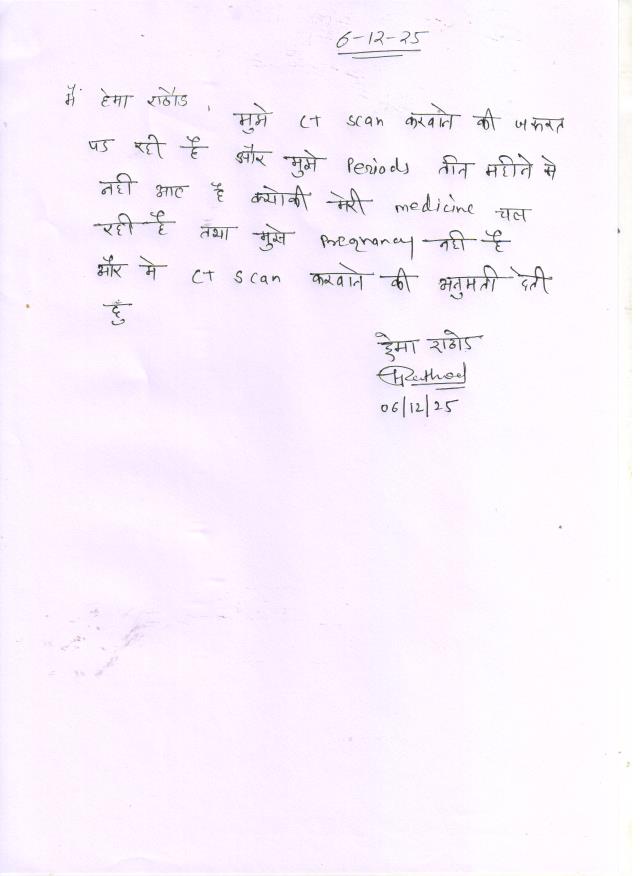 6-12-25
मैं हेमा राठौड, मुझे CT Scan करवाने की जरूरत
पड रही है और मुझे Periods तीन महीने से
नही आए है क्योकी मेरी medicine चल
रही है तथा मुझे Pregnancy नही है
और मे CT Scan करवाने की अनुमती देती
हुँ
हेमा राठोड
HRathod
06/12/25